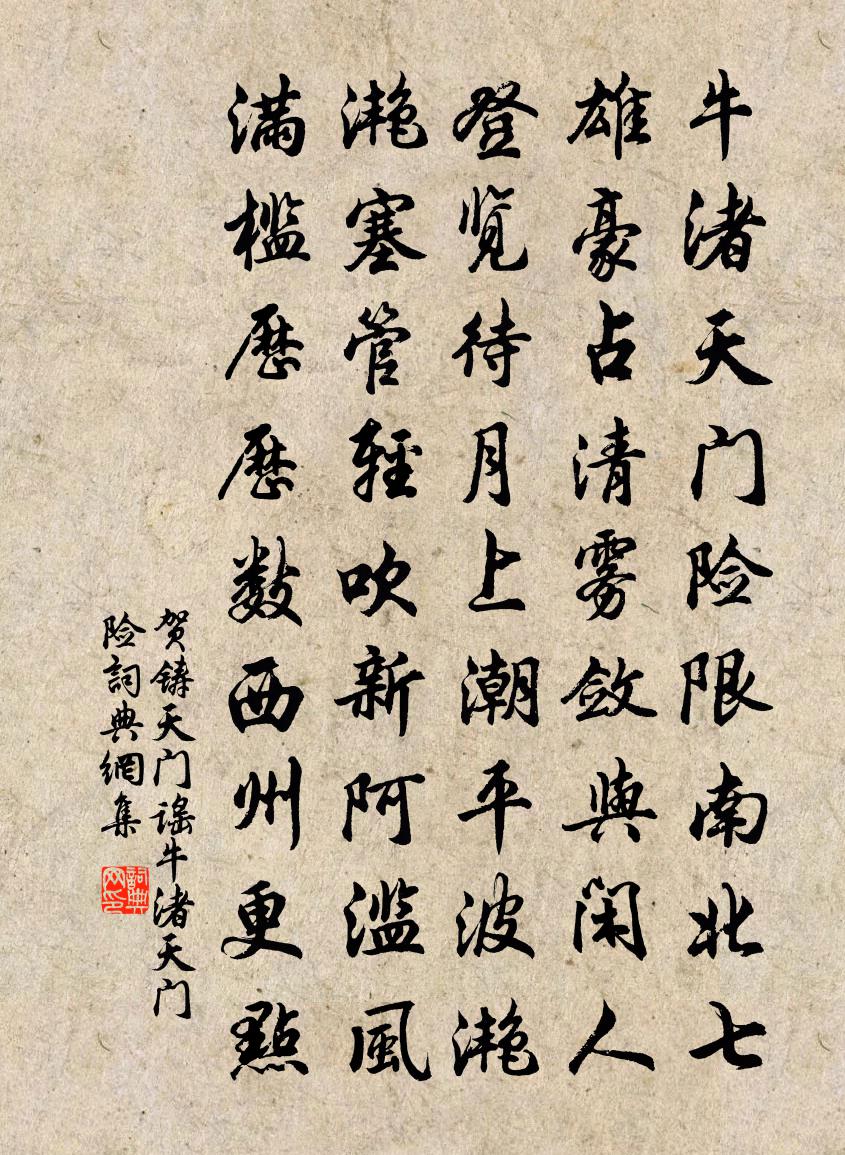 牛渚天门险限南北七
雄豪占清雾敛與闲人
登览待月上潮平波滟
滟塞管輕吹新阿滥風
满槛歷歷数西州更點
贺铸天门谣牛渚天门
险詞典網集
詞典网印